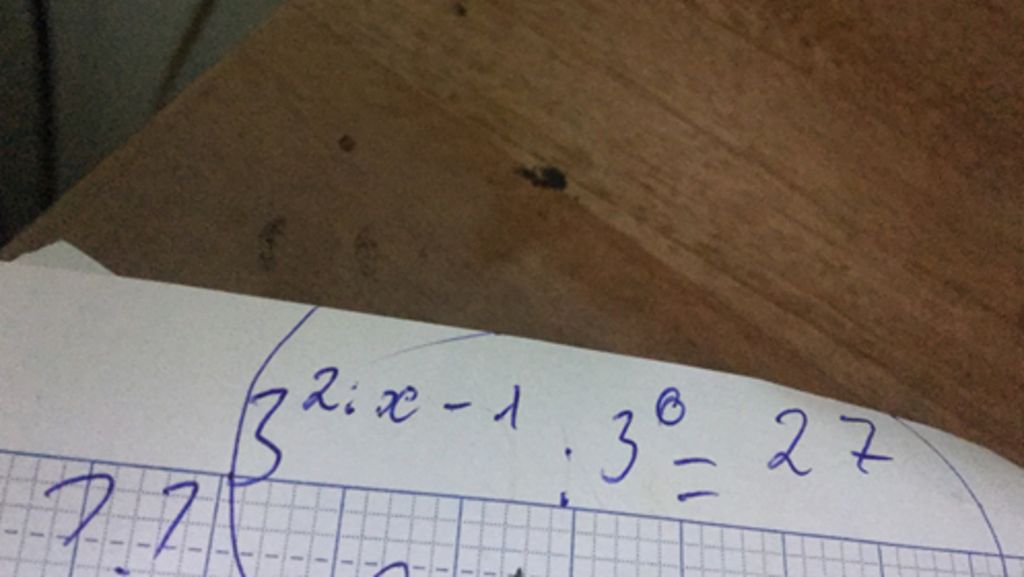 3^{2.x-1} : 3^0 = 27